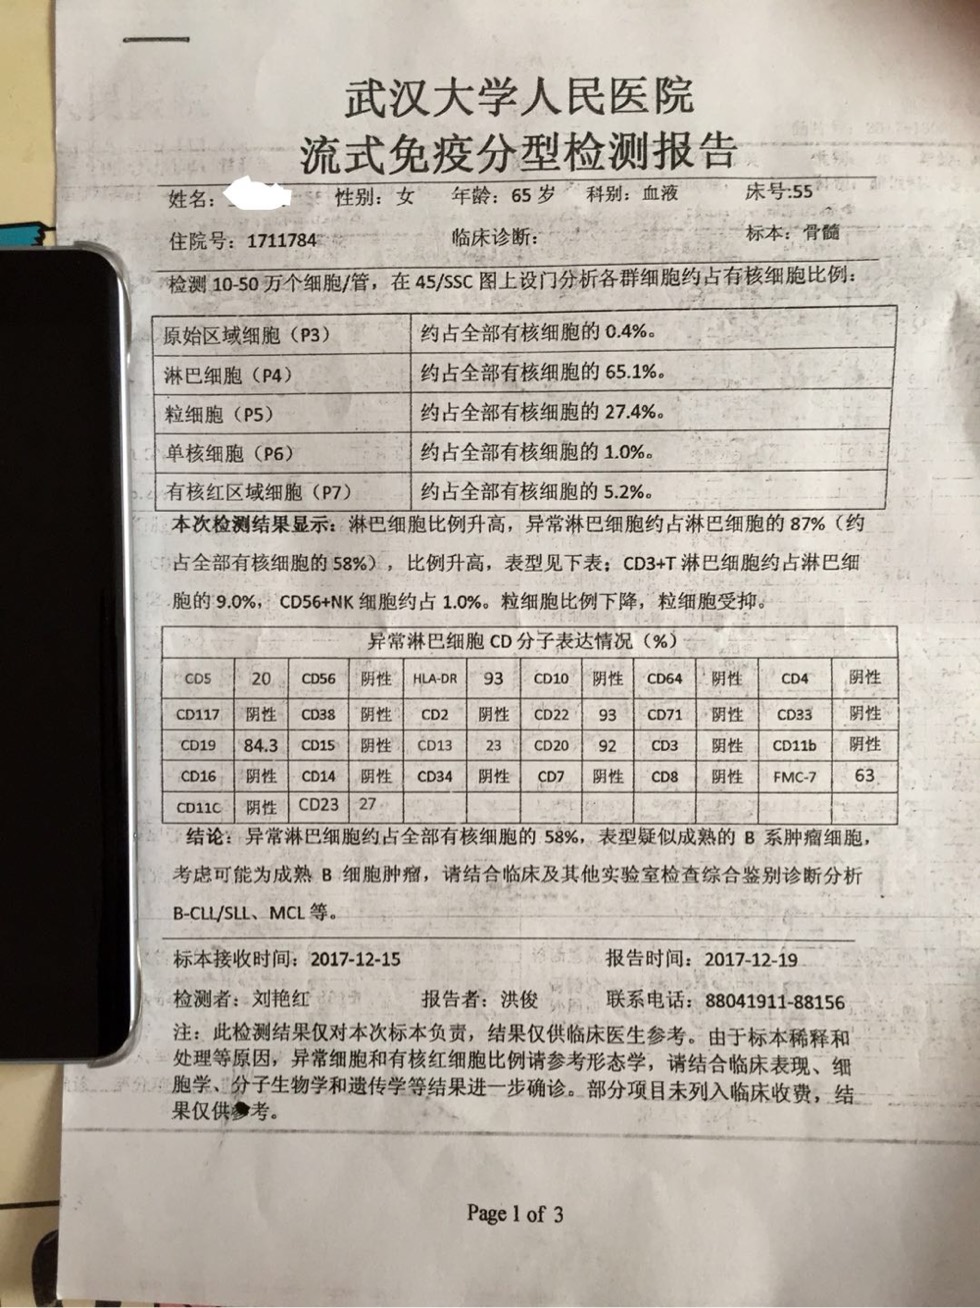 武汉大学人民医院
流式免疫分型检测报告
姓名： 性别：女 年龄：65 岁 科别：血液 床号:55
住院号：1711784 临床诊断： 标本：骨髓
检测 10-50 万个细胞/管，在 45/SSC 图上设门分析各群细胞约占有核细胞比例：
原始区域细胞（P3） 约占全部有核细胞的 0.4%。
淋巴细胞（P4） 约占全部有核细胞的 65.1%。
粒细胞（P5） 约占全部有核细胞的 27.4%。
单核细胞（P6） 约占全部有核细胞的 1.0%。
有核红区域细胞（P7） 约占全部有核细胞的 5.2%。
本次检测结果显示：淋巴细胞比例升高，异常淋巴细胞约占淋巴细胞的 87%（约
占全部有核细胞的 58%），比例升高，表型见下表；CD3+T 淋巴细胞约占淋巴细
胞的 9.0%，CD56+NK 细胞约占 1.0%。粒细胞比例下降，粒细胞受抑。
异常淋巴细胞 CD 分子表达情况（%）
CD5 20 CD56 阴性 HLA-DR 93 CD10 阴性 CD64 阴性 CD4 阴性
CD117 阴性 CD38 阴性 CD2 阴性 CD22 93 CD71 阴性 CD33 阴性
CD19 84.3 CD15 阴性 CD13 23 CD20 92 CD3 阴性 CD11b 阴性
CD16 阴性 CD14 阴性 CD34 阴性 CD7 阴性 CD8 阴性 FMC-7 63
CD11C 阴性 CD23 27
结论：异常淋巴细胞约占全部有核细胞的 58%，表型疑似成熟的 B 系肿瘤细胞，
考虑可能为成熟 B 细胞肿瘤，请结合临床及其他实验室检查综合鉴别诊断分析
B-CLL/SLL、MCL 等。
标本接收时间：2017-12-15 报告时间：2017-12-19
检测者：刘艳红 报告者：洪俊 联系电话：88041911-88156
注：此检测结果仅对本次标本负责，结果仅供临床医生参考。由于标本稀释和
处理等原因，异常细胞和有核红细胞比例请参考形态学，请结合临床表现、细
胞学、分子生物学和遗传学等结果进一步确诊。部分项目未列入临床收费，结
果仅供参考。
Page 1 of 3